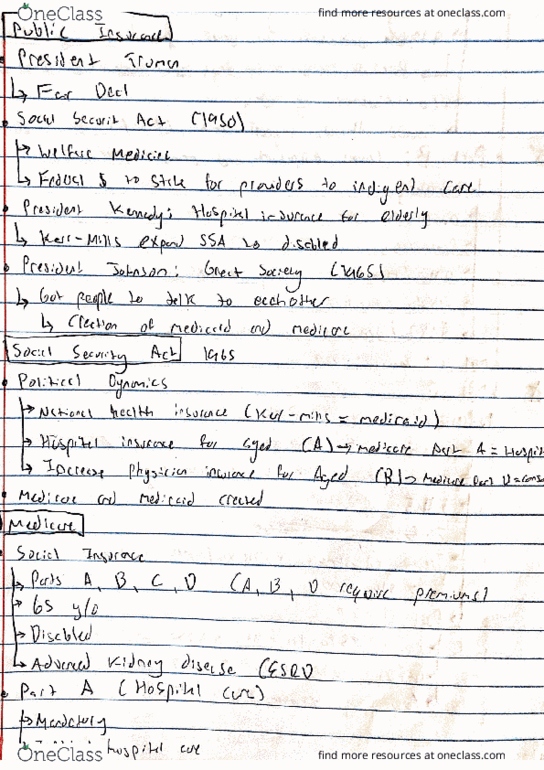 OneClass
find more resources at oneclass.com
Public Insurance
President Truman
↳ Fair Deal
Social Securit Act (1950)
→ Welfare Medicine
↳ Federal $ to state for providers to indigent care
President Kennedy: Hospital insurance for elderly
↳ Kerr-Mills expand SSA to disabled
President Johnson: Great Society (1965)
↳ Got people to talk to eachother
↳ Creation of medicaid and medicare
Social Security Act 1965
Political Dynamics
→ National health insurance (Kerr-mills = medicaid)
→ Hospital insurance for aged (A) → medicare part A = Hospit
↳ Increase physician insurance for Aged (B) → Medicare part
Medicare and medicaid created
Medicare
Social Insurance
→ Parts A, B, C, D (A, B, D require premiums)
→ 65 y/o
→ Disabled
↳ Advanced kidney disease (ESRD
Part A (Hospital care)
→ Mandatory
hospital care
OneClass
find more resources at oneclass.com